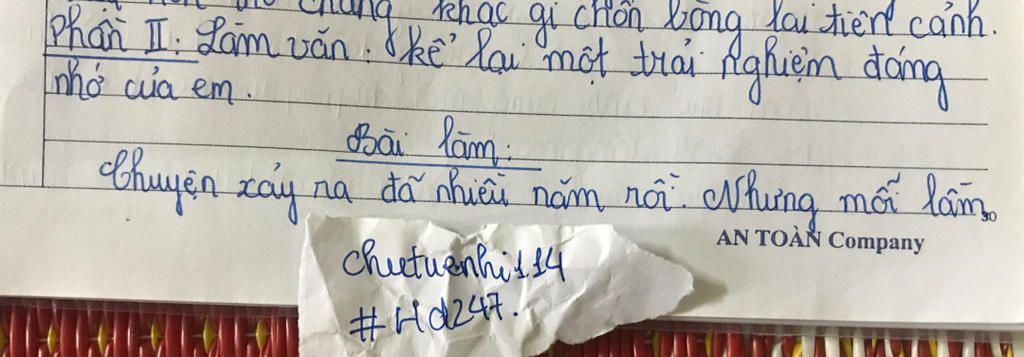 chẳng khác gì chốn bồng lai tiên cảnh.
Phần II: Làm văn. Kể lại một trải nghiệm đáng
nhớ của em.
Bài làm:
Chuyện xảy ra đã nhiều năm rồi. Nhưng mỗi lần
AN TOÀN Company
chutuenhi114
#Hd247.